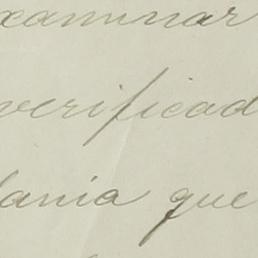 xaminar
verificad
lania que